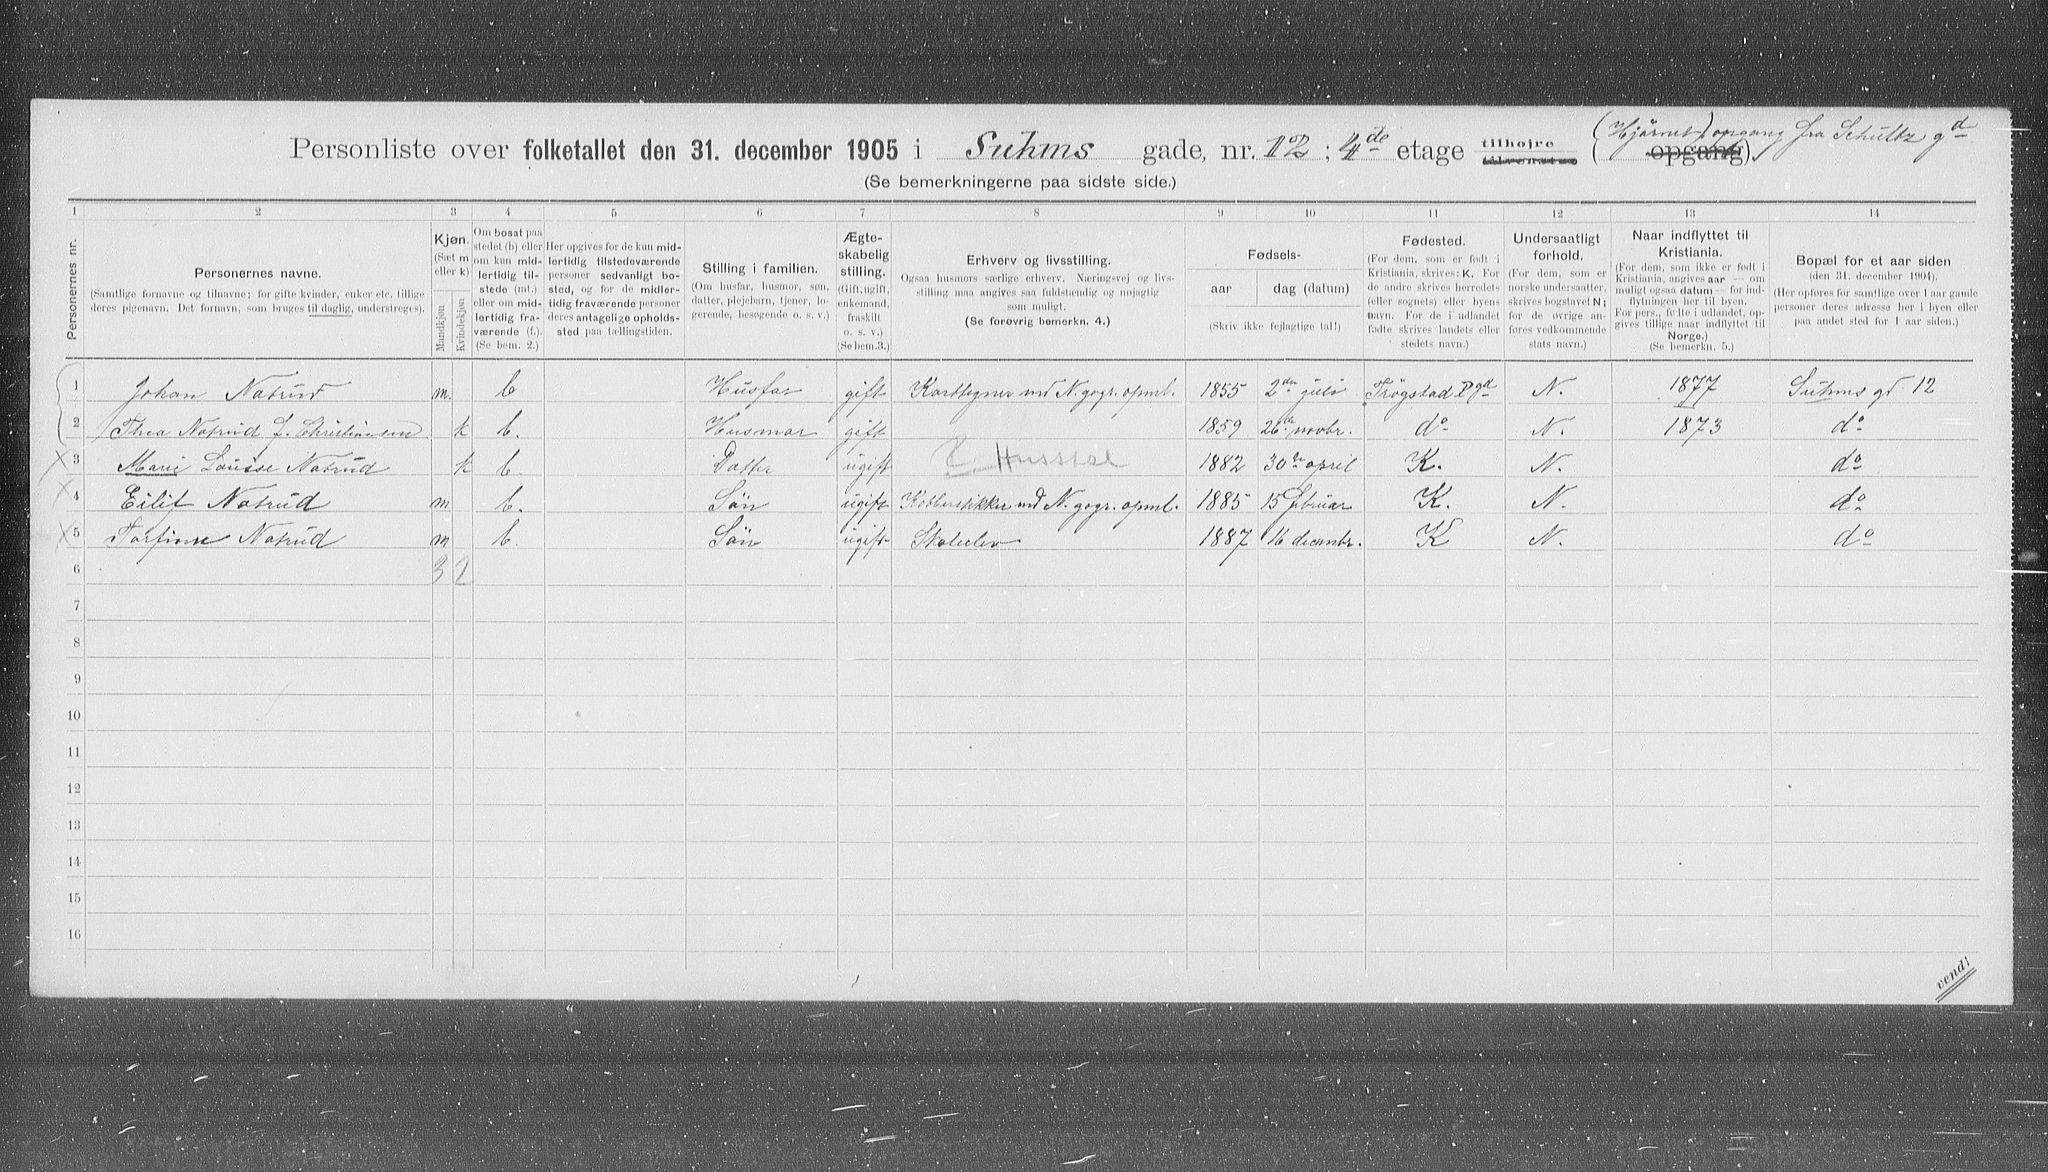 Personliste over folketallet den 31. december 1905 i Suhms gade, nr. 12; 4de etage tilhøjre tilvenstre (opgang) (Hjørnet) opgang fra Schultz gd
(Se bemerkningerne paa sidste side.)
1 2 3 4 5 6 7 8 9 10 11 12 13 14
Personernes nr.
Personernes navne.
(Samtlige fornavne og tilnavne; for gifte kvinder, enker etc. tillige
deres pigenavn. Det fornavn, som bruges til daglig, understreges).
Kjøn.
(Sæt m
eller k)
Mandkjøn
Kvindekjøn
Om bosat paa
stedet (b) eller
om kun mid-
lertidig til-
stede (mt.)
eller om mid-
lertidig fra-
værende (f.).
(Se bem. 2.)
Her opgives for de kun mid-
lertidig tilstedeværende
personer sedvanligt bo-
sted, og for de midler-
tidig fraværende personer
deres antagelige opholds-
sted paa tællingstiden.
Stilling i familien.
(Om husfar, husmor, søn,
datter, plejebarn, tjener, lo-
gerende, besøgende o. s. v.)
Ægte-
skabelig
stilling.
(Gift, ugift,
enkemand,
fraskilt
o. s. v.)
(Se bem.3.)
Erhverv og livsstilling.
Ogsaa husmors særlige erhverv. Næringsvej og livs-
stilling maa angives saa fuldstændig og nøjagtig
som muligt.
(Se forøvrig bemerkn. 4.)
Fødsels-
aar dag (datum)
(Skriv ikke fejlagtige tal!)
Fødested.
(For dem, som er født i
Kristiania, skrives: K. For
de andre skrives herredets
(eller sognets) eller byens
navn. For de i udlandet
fødte skrives landets eller
stedets navn.)
Undersaatligt
forhold.
(For dem, som er
norske undersaatter,
skrives bogstavet N;
for de øvrige an-
føres vedkommende
stats navn.)
Naar indflyttet til
Kristiania.
(For dem, som ikke er født i
Kristiania, angives aar — om
muligt ogsaa datum — for ind-
flytningen her til byen.
For pers., fødte i udlandet, op-
gives tillige naar indflyttet til
Norge.)
(Se bemerkn. 5.)
Bopæl for et aar siden
(den 31. december 1904).
(Her opføres for samtlige over 1 aar gamle
personer deres adresse her i byen eller
paa andet sted for 1 aar siden.)
1 Johan Natrud m. b Husfar gift Karttegner ved N. gogr. opml. 1855 2den juli Trøgstad Pgd N. 1877 Suhms gd 12
2 Thea Natrud f. Christiansen k b. Husmor gift 1859 26de novbr. do N. 1873 do
3 Marie Louise Natrud k b. Datter ugift Husstel 1882 30te april K. N. do
4 Eilif Natrud m b. Søn ugift Kobberstikker ved N. gogr. opml. 1885 15 februar K. N. do
5 Torfinn Natrud m b. Søn ugift Skoleelev 1887 16 decembr. K N. do
6 3 2
7
8
9
10
11
12
13
14
15
16
vend!